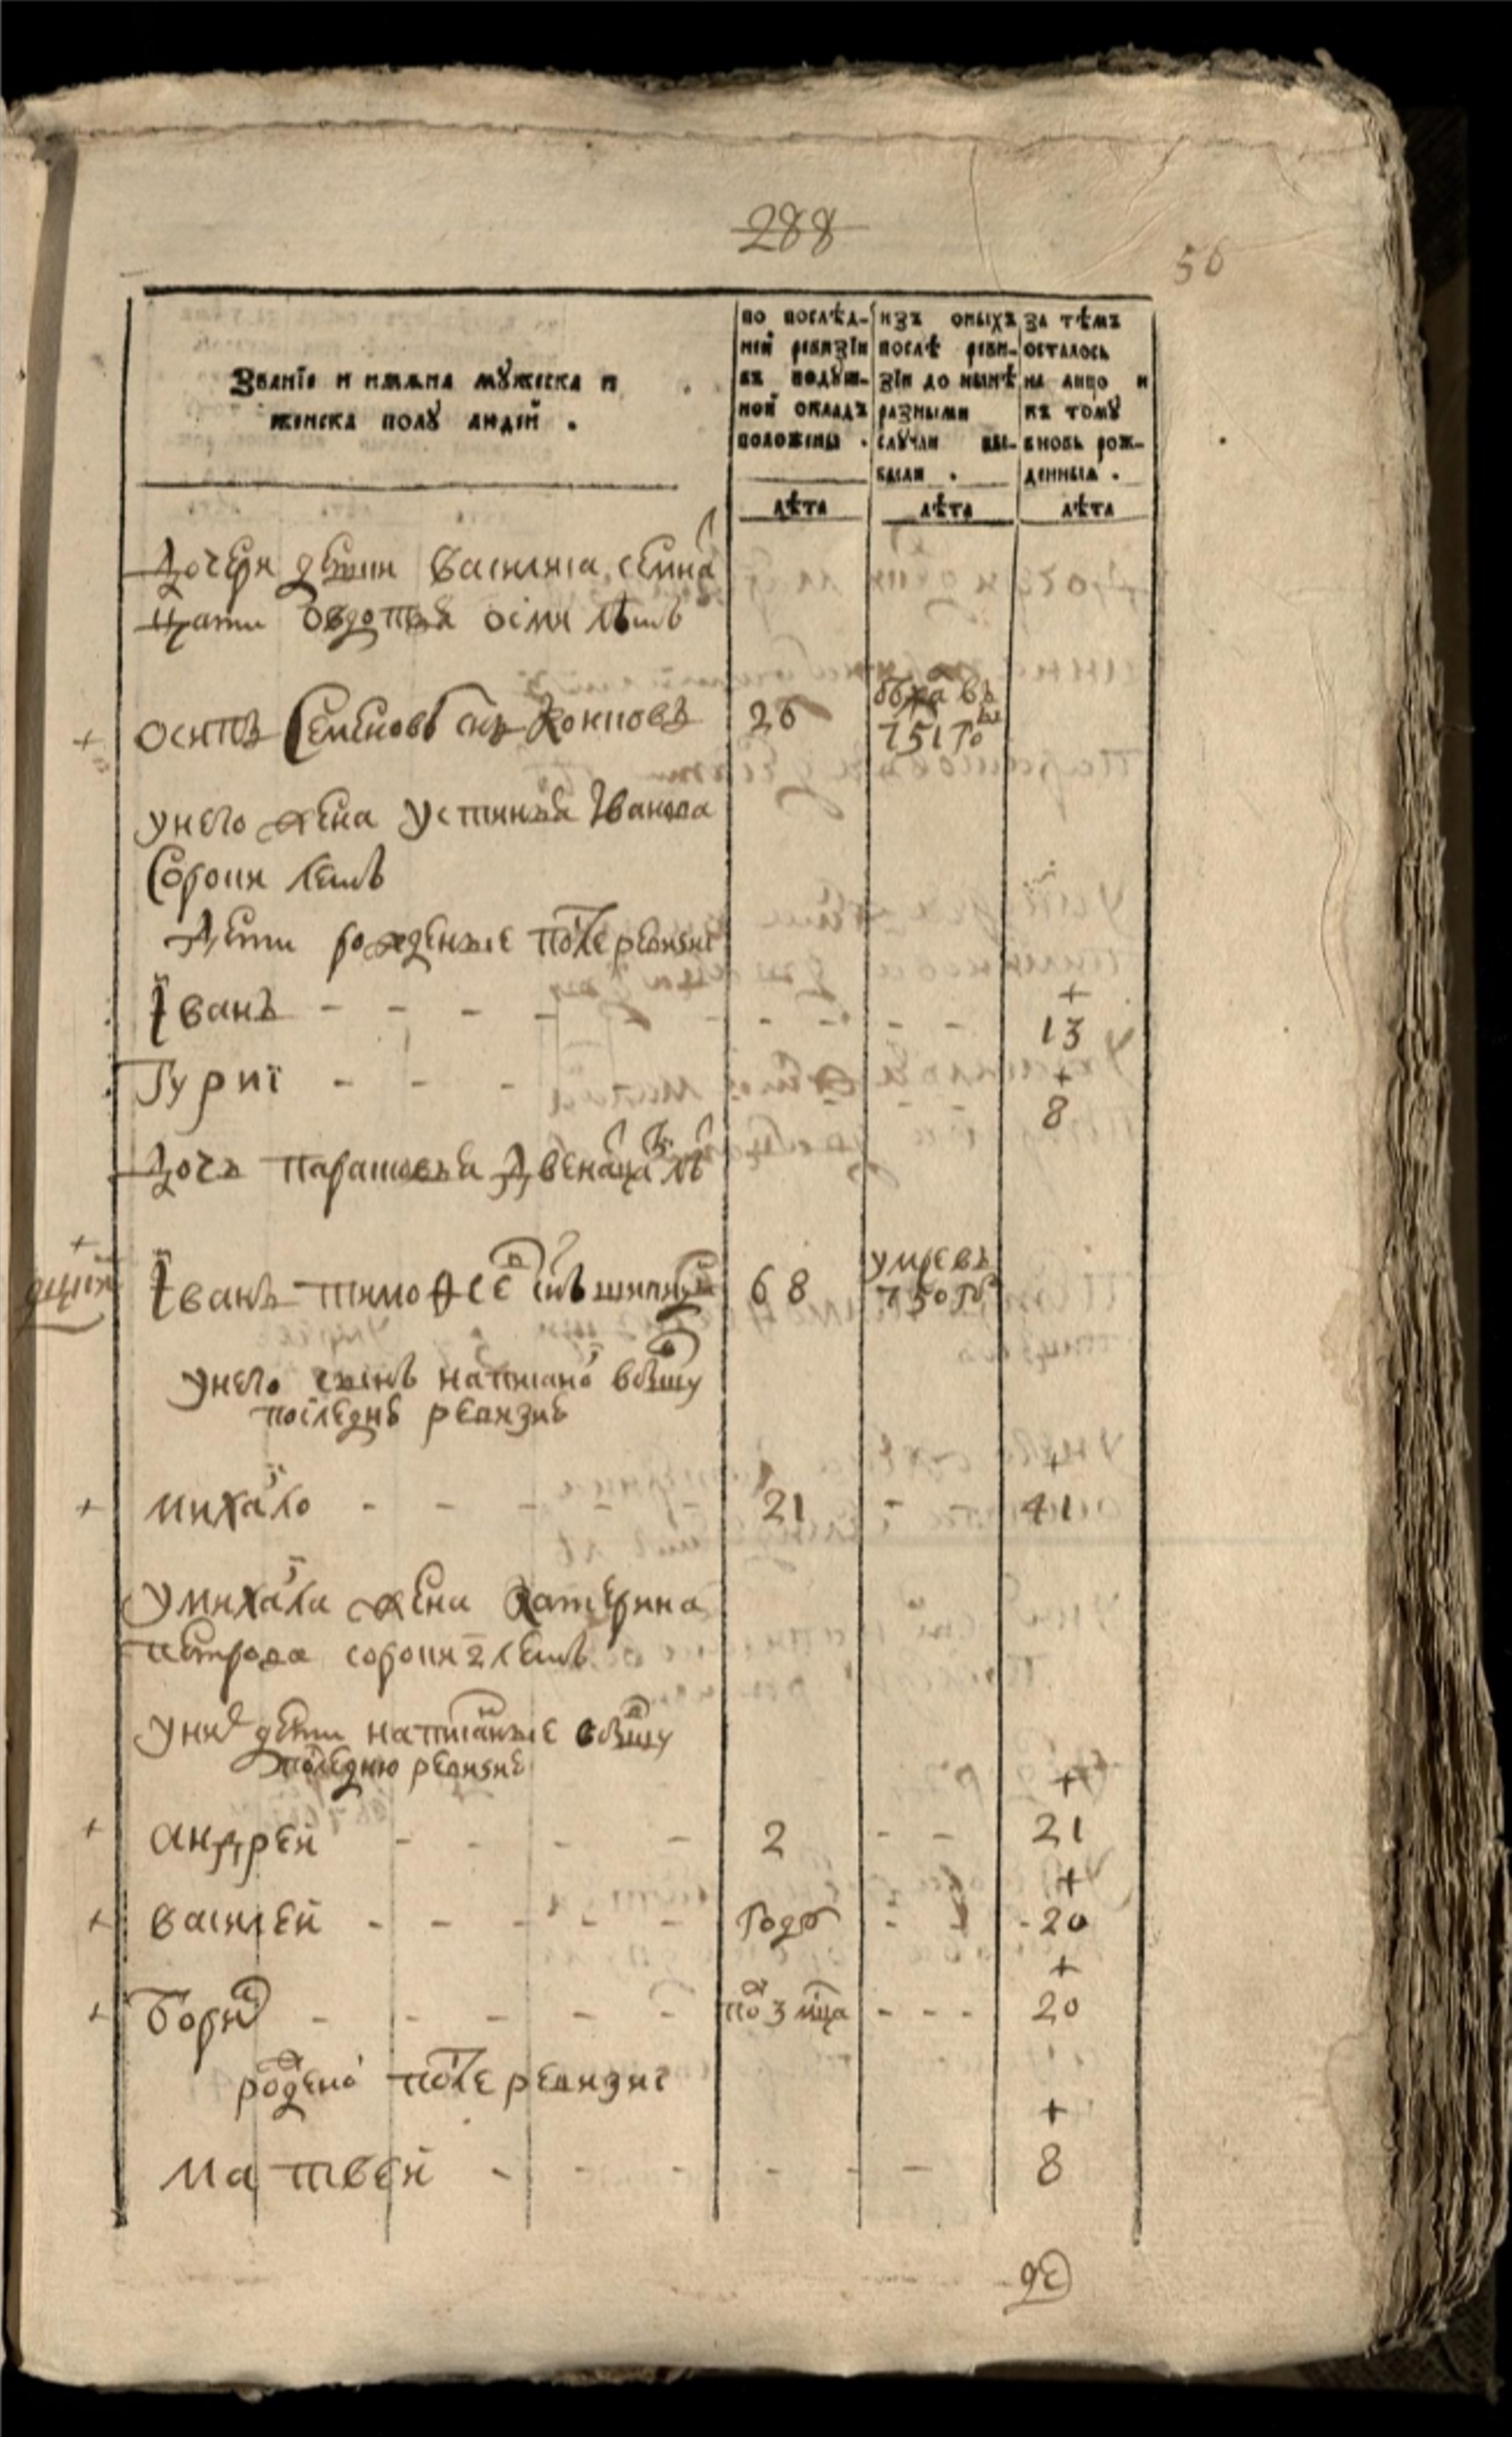 288
56
Званїе и имѧна мꙋжеска и
женска полꙋ людей .
по послѣд-
ней ревизїи
въ подꙋш-
ной окладъ
положены .
изъ оныхъ
послѣ реви-
зїи до нынѣ
разными
случаи вы-
были .
за тѣмъ
осталось
на лицо и
къ томꙋ
вновь рож-
денныѧ .
лѣта
лѣта
лѣта
дочери девки василиса семна
цати овдотья осми лѣтъ
+ осипъ семеновъ снъ 26 въ
751 го
у него жена устинья Іванова
сорока летъ
дети рожденые после ревизиі
Іванъ - - - - - - - - - + 13
Гуриі - - - + 8
дочь парасковья двенаца лѣ
+
Іванъ тимофее снъ 68 умре въ
750 го
у него сынъ написано въ бышу
последне ревизие
+ михаило - - - 21 - + 41
у михаила жена катерина
петрова сорока 2 летъ
у них дети написаные в бышу
последнюю ревизие
+ андреи - - - - 2 - - + 21
+ василеи - - - - - годъ - - + 20
+ борис - - - - - по 3 мца - - - + 20
рожено после ревизиі
матвеи - - - - - - + 8